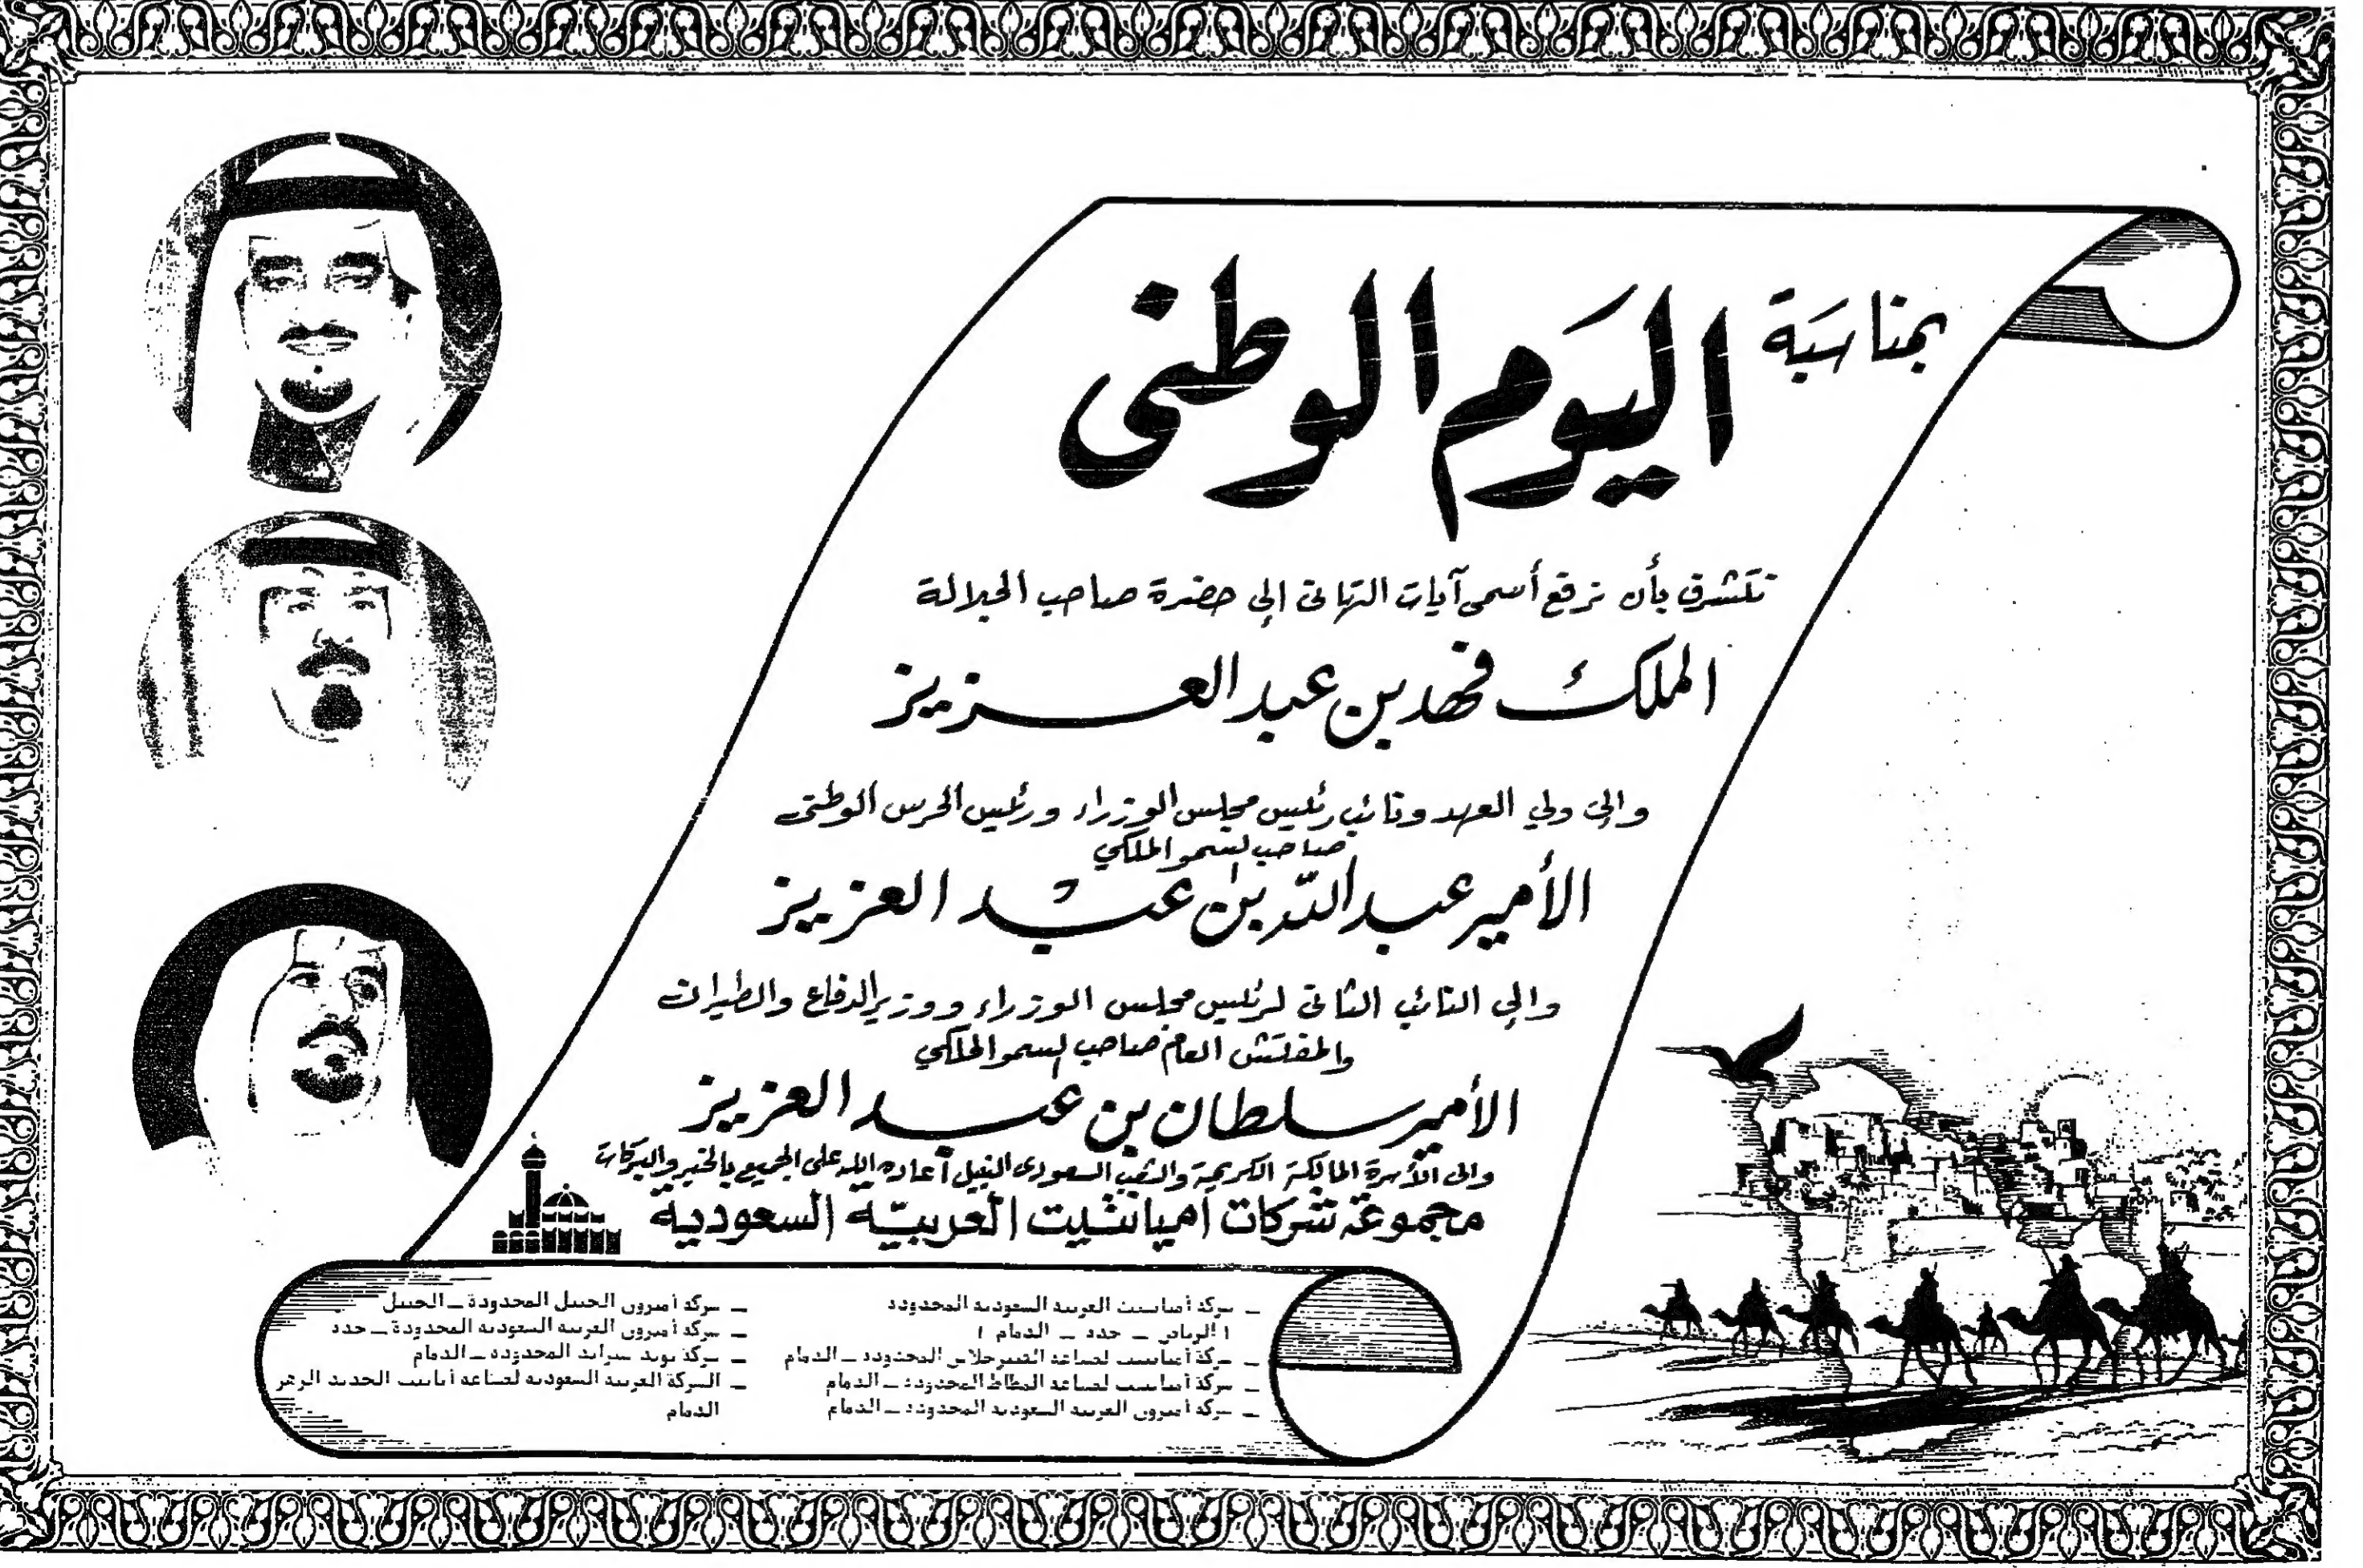 بمناسبة
اليوم الوطنى
نتشرف بأن نرفع أسمى آيات التهانى إلى حضرة صاحب الجلالة
الملك فهد بن عبد العزيز
وإلى ولي العهد ونائب رئيس مجلس الوزراء ورئيس الحرس الوطنى
صاحب السمو الملكي
الأمير عبدالله بن عبد العزيز
وإلى النائب الثانى لرئيس مجلس الوزراء ووزير الدفاع والطيران
والمفتش العام صاحب السمو الملكي
الأمير سلطان بن عبد العزيز
والى الأسرة المالكة الكريمة والشعب السعودى النبيل أعاده الله على الجميع بالخير والبركات
مجموعة شركات اميانتيت العربية السعودية
– شركة أميانتيت العربية السعودية المحدودة
( الرياض – جدة – الدمام )
– شركة أميانتيت لصناعة الفيبرجلاس المحدودة – الدمام
– شركة أميانتيت لصناعة المطاط المحدودة – الدمام
– شركة أميرون العربية السعودية المحدودة – الدمام
– شركة أميرون الجبيل المحدودة – الجبيل
– شركة أميرون العربية السعودية المحدودة – جدة
– شركة بوند ستراند المحدودة – الدمام
– الشركة العربية السعودية لصناعة أنابيب الحديد الزهر
الدمام